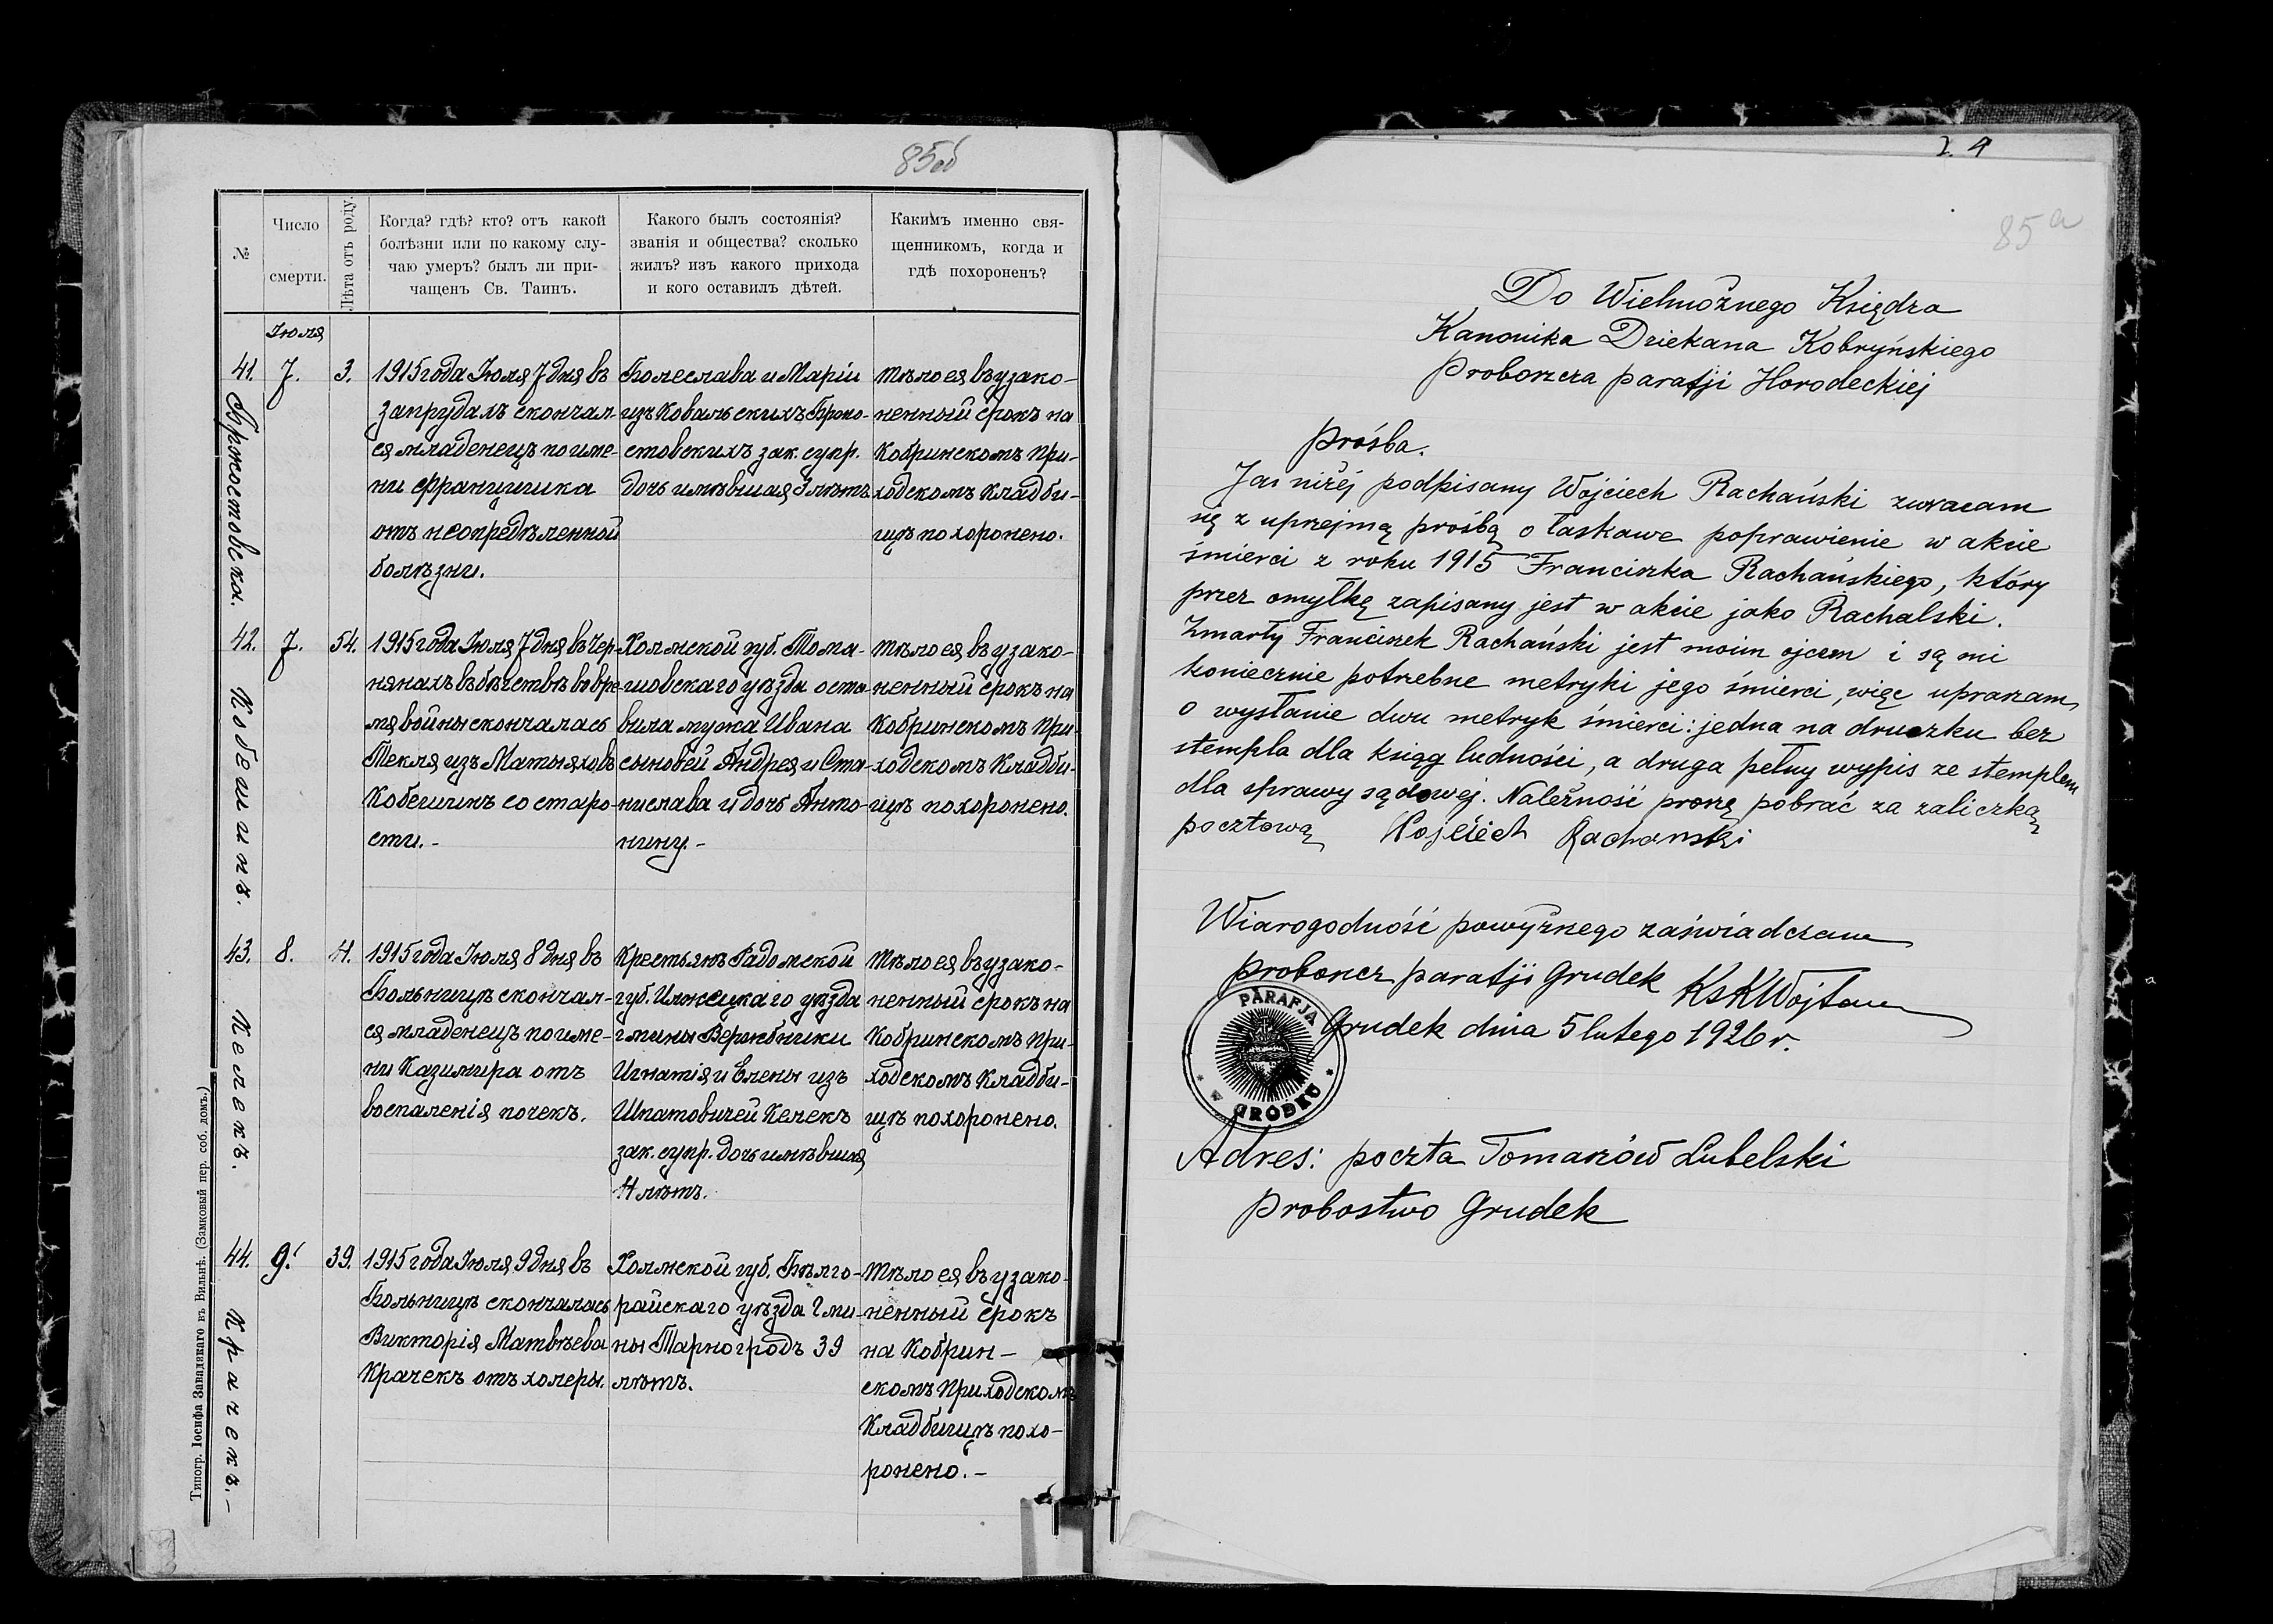 85об
№
Число
смерти.
Лѣта отъ роду.
Когда? гдѣ? кто? отъ какой
болѣзни или по какому слу-
чаю умеръ? былъ ли при-
чащенъ Св. Таинъ.
Какого былъ состоянія?
званія и общества? сколько
жилъ? изъ какого прихода
и кого оставилъ дѣтей.
Какимъ именно свя-
щенникомъ, когда и
гдѣ похороненъ?
Іюля
41.
Бржостовска.
7.
3.
1915 года Іюля 7 дня въ
Запрудахъ скончал-
ся младенецъ по име-
ни Францишка
отъ неопредѣленной
болѣзни.
Болеслава и Маріи
изъ Ковальскихъ Бржо-
стовскихъ зак. супр.
дочь имѣвшая 3 лѣтъ
Тѣло ея въ узако-
ненный срокъ на
Кобринскомъ При-
ходскомъ Кладби-
щѣ похоронено.
42.
Кобешинъ.
7.
54.
1915 года Іюля 7 дня въ Чер-
нянахъ въ бѣгствѣ во вре-
мя войны скончалась
Текля изъ Матыяховъ
Кобешинъ со старо-
сти.-
Холмской губ. Тома-
шовскаго уѣзда оста-
вила мужа Ивана
сыновей Андрея и Ста-
нислава и дочь Анто-
нину.-
Тѣло ея въ узако-
ненный срокъ на
Кобринскомъ При-
ходскомъ Кладби-
щѣ похоронено.
43.
Келекъ.
8.
4.
1915 года Іюля 8 дня въ
Больницѣ скончал-
ся младенецъ по име-
ни Казимира отъ
воспаленія почекъ.
Крестьянъ Радомской
губ. Илжецкаго уѣзда
гмины Вержбники
Игнатія и Елены изъ
Шпатовичей Келекъ
зак. супр. дочь имѣвшая
4 лѣтъ.
Тѣло ея въ узако-
ненный срокъ на
Кобринскомъ При-
ходскомъ Кладби-
щѣ похоронено.
44.
Крачекъ.-
9.
39.
1915 года Іюля 9 дня въ
Больницѣ скончалась
Викторія Матвѣева
Крачекъ отъ холеры.
Холмской губ. Бѣлго-
райскаго уѣзда Гми-
ны Тарногродъ 39
лѣтъ.
Тѣло ея въ узако-
ненный срокъ
на Кобрин-
скомъ Приходскомъ
Кладбищѣ похо-
ронено.-
Типогр. Іосифа Завадзкаго въ Вильнѣ. (Замковый пер. соб. домъ.)
85a
Do Wielmożnego Księdza
Kanonika Dziekana Kobryńskiego
Proboszcza parafji Horodeckiej
Prośba.
Ja niżéj podpisany Wojciech Rachański zwracam
się z uprzejmą prośbą o łaskawe poprawienie w akcie
śmierci z roku 1915 Franciszka Rachańskiego, który
przez omyłkę zapisany jest w akcie jako Rachalski.
Zmarły Franciszek Rachański jest moim ojcem i są mi
koniecznie potrzebne metryki jego śmierci, więc upraszam
o wysłanie dwu metryk śmierci: jedna na druczku bez
stempla dla ksiąg ludności, a druga pełny wypis ze stemplem
dla sprawy sądowéj. Należność proszę pobrać za zaliczką
pocztową Wojciech Rachanski
Wiarogodność powyżnego zaświadczam
proboszcz parafji Grudek KsKWójtow
Grudek dnia 5 lutego 1926 r.
PARAFJA
w GRÓDKU
Adres: poczta Tomaszów Lubelski
Probostwo Grudek